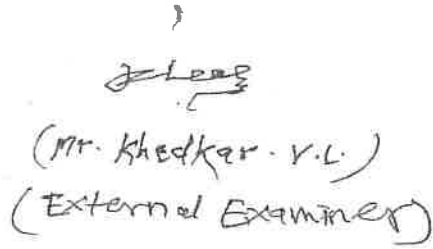 (Mr. Khedkar. V.L.)
(External Examiner)